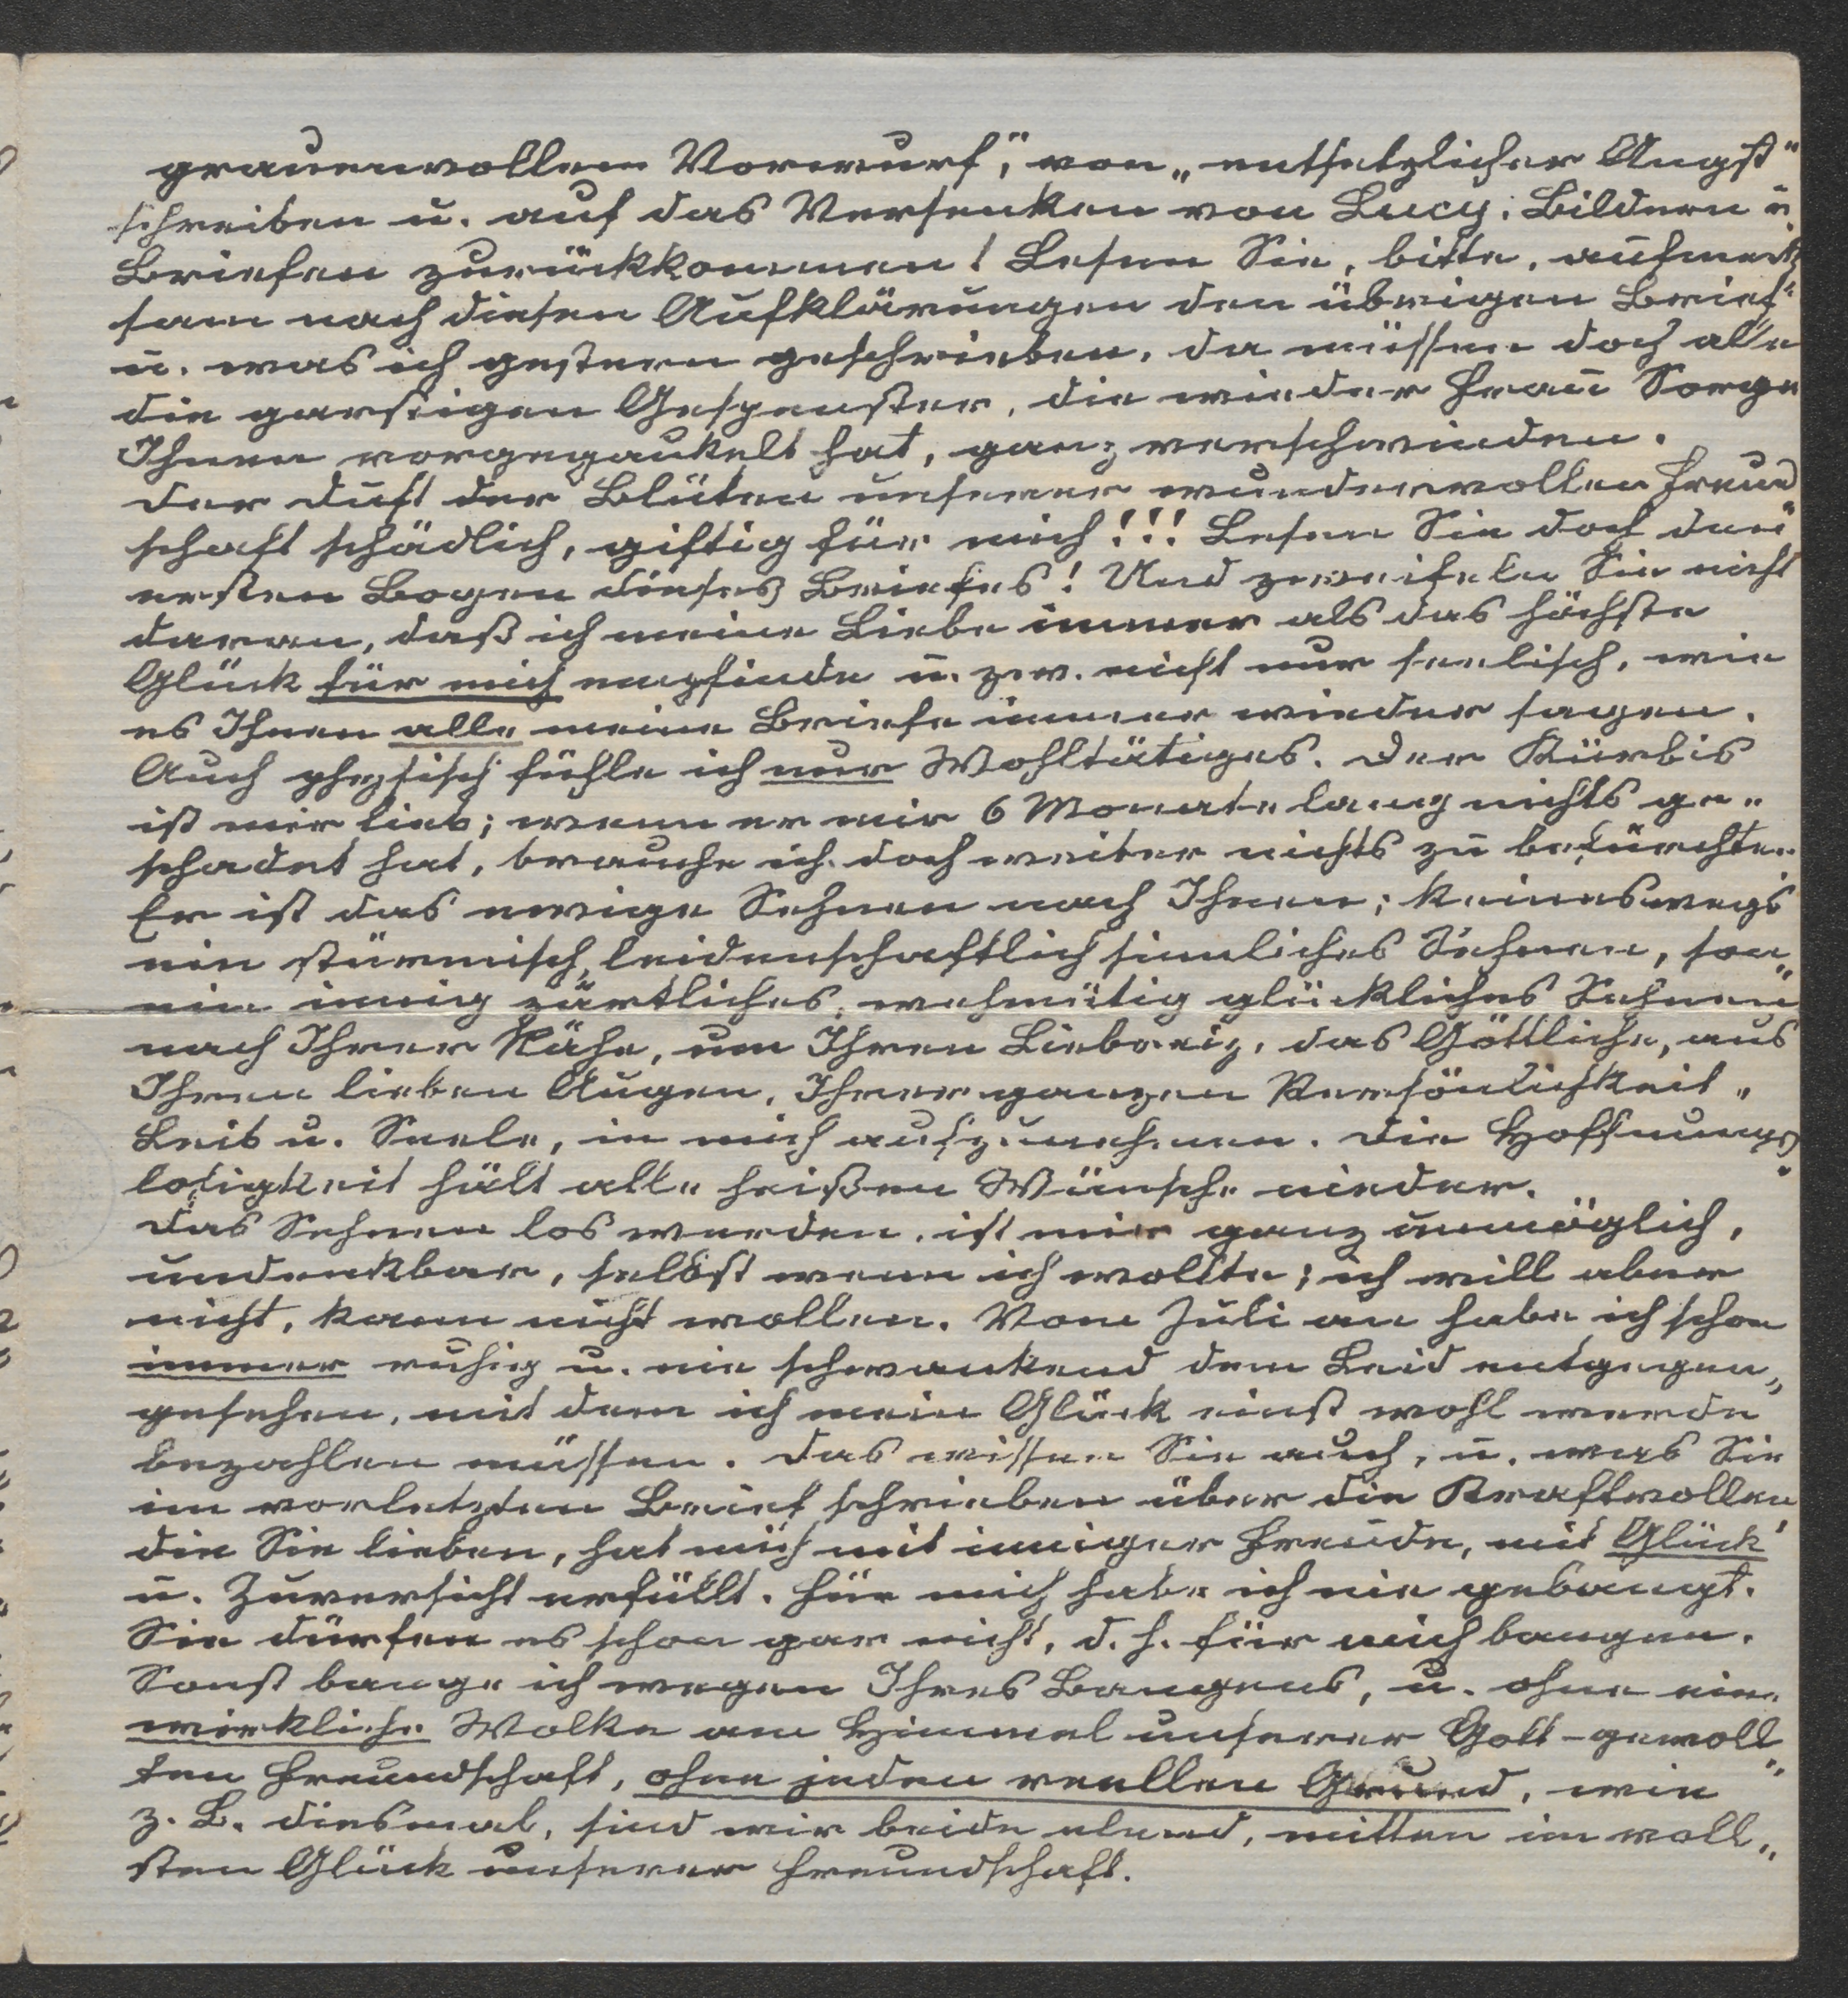 grauenvollem Vorwurf", von „entsetzlicher Angst"
schreiben u. auf das Versenken von Lucy: Bildern u
Briefen zurückkommen! Lesen Sie, bitte, aufmerk
sam nach diesen Aufklärungen den übrigen Brief
u. was ich gestern geschrieben, da müssen doch alle
die garstigen Gespenster, die wieder Frau Sorge
Ihnen vorgegaukelt hat, ganz verschwinden.
Der Duft der Blüten unserer wundervollen Freund
schaft schädlich, giftig für mich!!! Lesen Sie doch drei
ersten Bogen dieses Briefes! Und zweifeln Sie nicht
daran, daß ich meine Liebe immer als das höchste
Glück für mich empfinde u. zw. nicht nur seelisch, wie
es Ihnen alle meine Briefe immer wieder sagen.
Auch physisch fühle ich nur Wohltätiges. Der Kürbis
ist mir lieb; wenn er mir 6 Monate lang nichts ge„
schadet hat, brauche ich doch weiter nichts zu befürchten.
Er ist das ewige Sehnen nach Ihnen; keineswegs
ein stürmisch, leidenschaftlich sinnliches Sehnen, son„
ein innig zärtliches, wehmütig glückliches Sehnen
nach Ihrer Nähe, um Ihren Liebreiz, das Göttliche, aus
Ihren lieben Augen, Ihrer ganzen Persönlichkeit,
Leib u. Seele, in mich aufzunehmen. Die Hoffnungs„
losigkeit hält alle heißen Wünsche nieder.
Das Sehnen los werden, ist mir ganz unmöglich,
undenkbar, selbst wenn ich wollte; ich will aber
nicht, kann nicht wollen. Vom Juli an habe ich schon
immer ruhig u. nie schwankend dem Leid entgegen„
gesehen, mit dem ich mein Glück einst wohl werde
bezahlen müssen. Das wissen Sie auch, u. was Sie
im vorletzten Brief schrieben über die Kraftvollen
die Sie lieben, hat mich mit inniger Freude, mit Glück
u. Zuversicht erfüllt. Für mich habe ich nie gebangt.
Sie dürfen es schon gar nicht, d. h. für mich bangen.
Sonst bange ich wegen Ihres Bangens, u. ohne eine
wirkliche Wolke am Himmel unserer Gott-gewoll„
ten Freundschaft, ohne jeden reellen Grund, wie
z. B. diesmal, sind wir beide elend, mitten im voll„
sten Glück unserer Freundschaft.